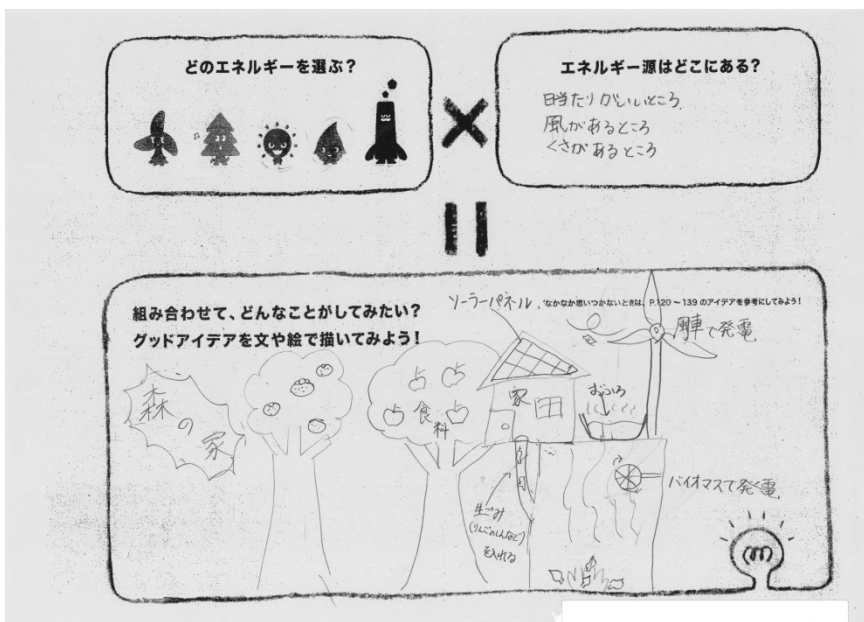 どのエネルギーを選ぶ？
エネルギー源はどこにある？
日当たりがいいところ
風があるところ
くさがあるところ
組み合わせて、どんなことがしてみたい？
グッドアイデアを文や絵で描いてみよう！
なかなか思いつかないときは、P.120～139のアイデアを参考にしてみよう！
ソーラーパネル
風車で発電
森の家
食料
家
おふろ
バイオマスで発電
生ごみ
(りんごのしんなど)
を入れる